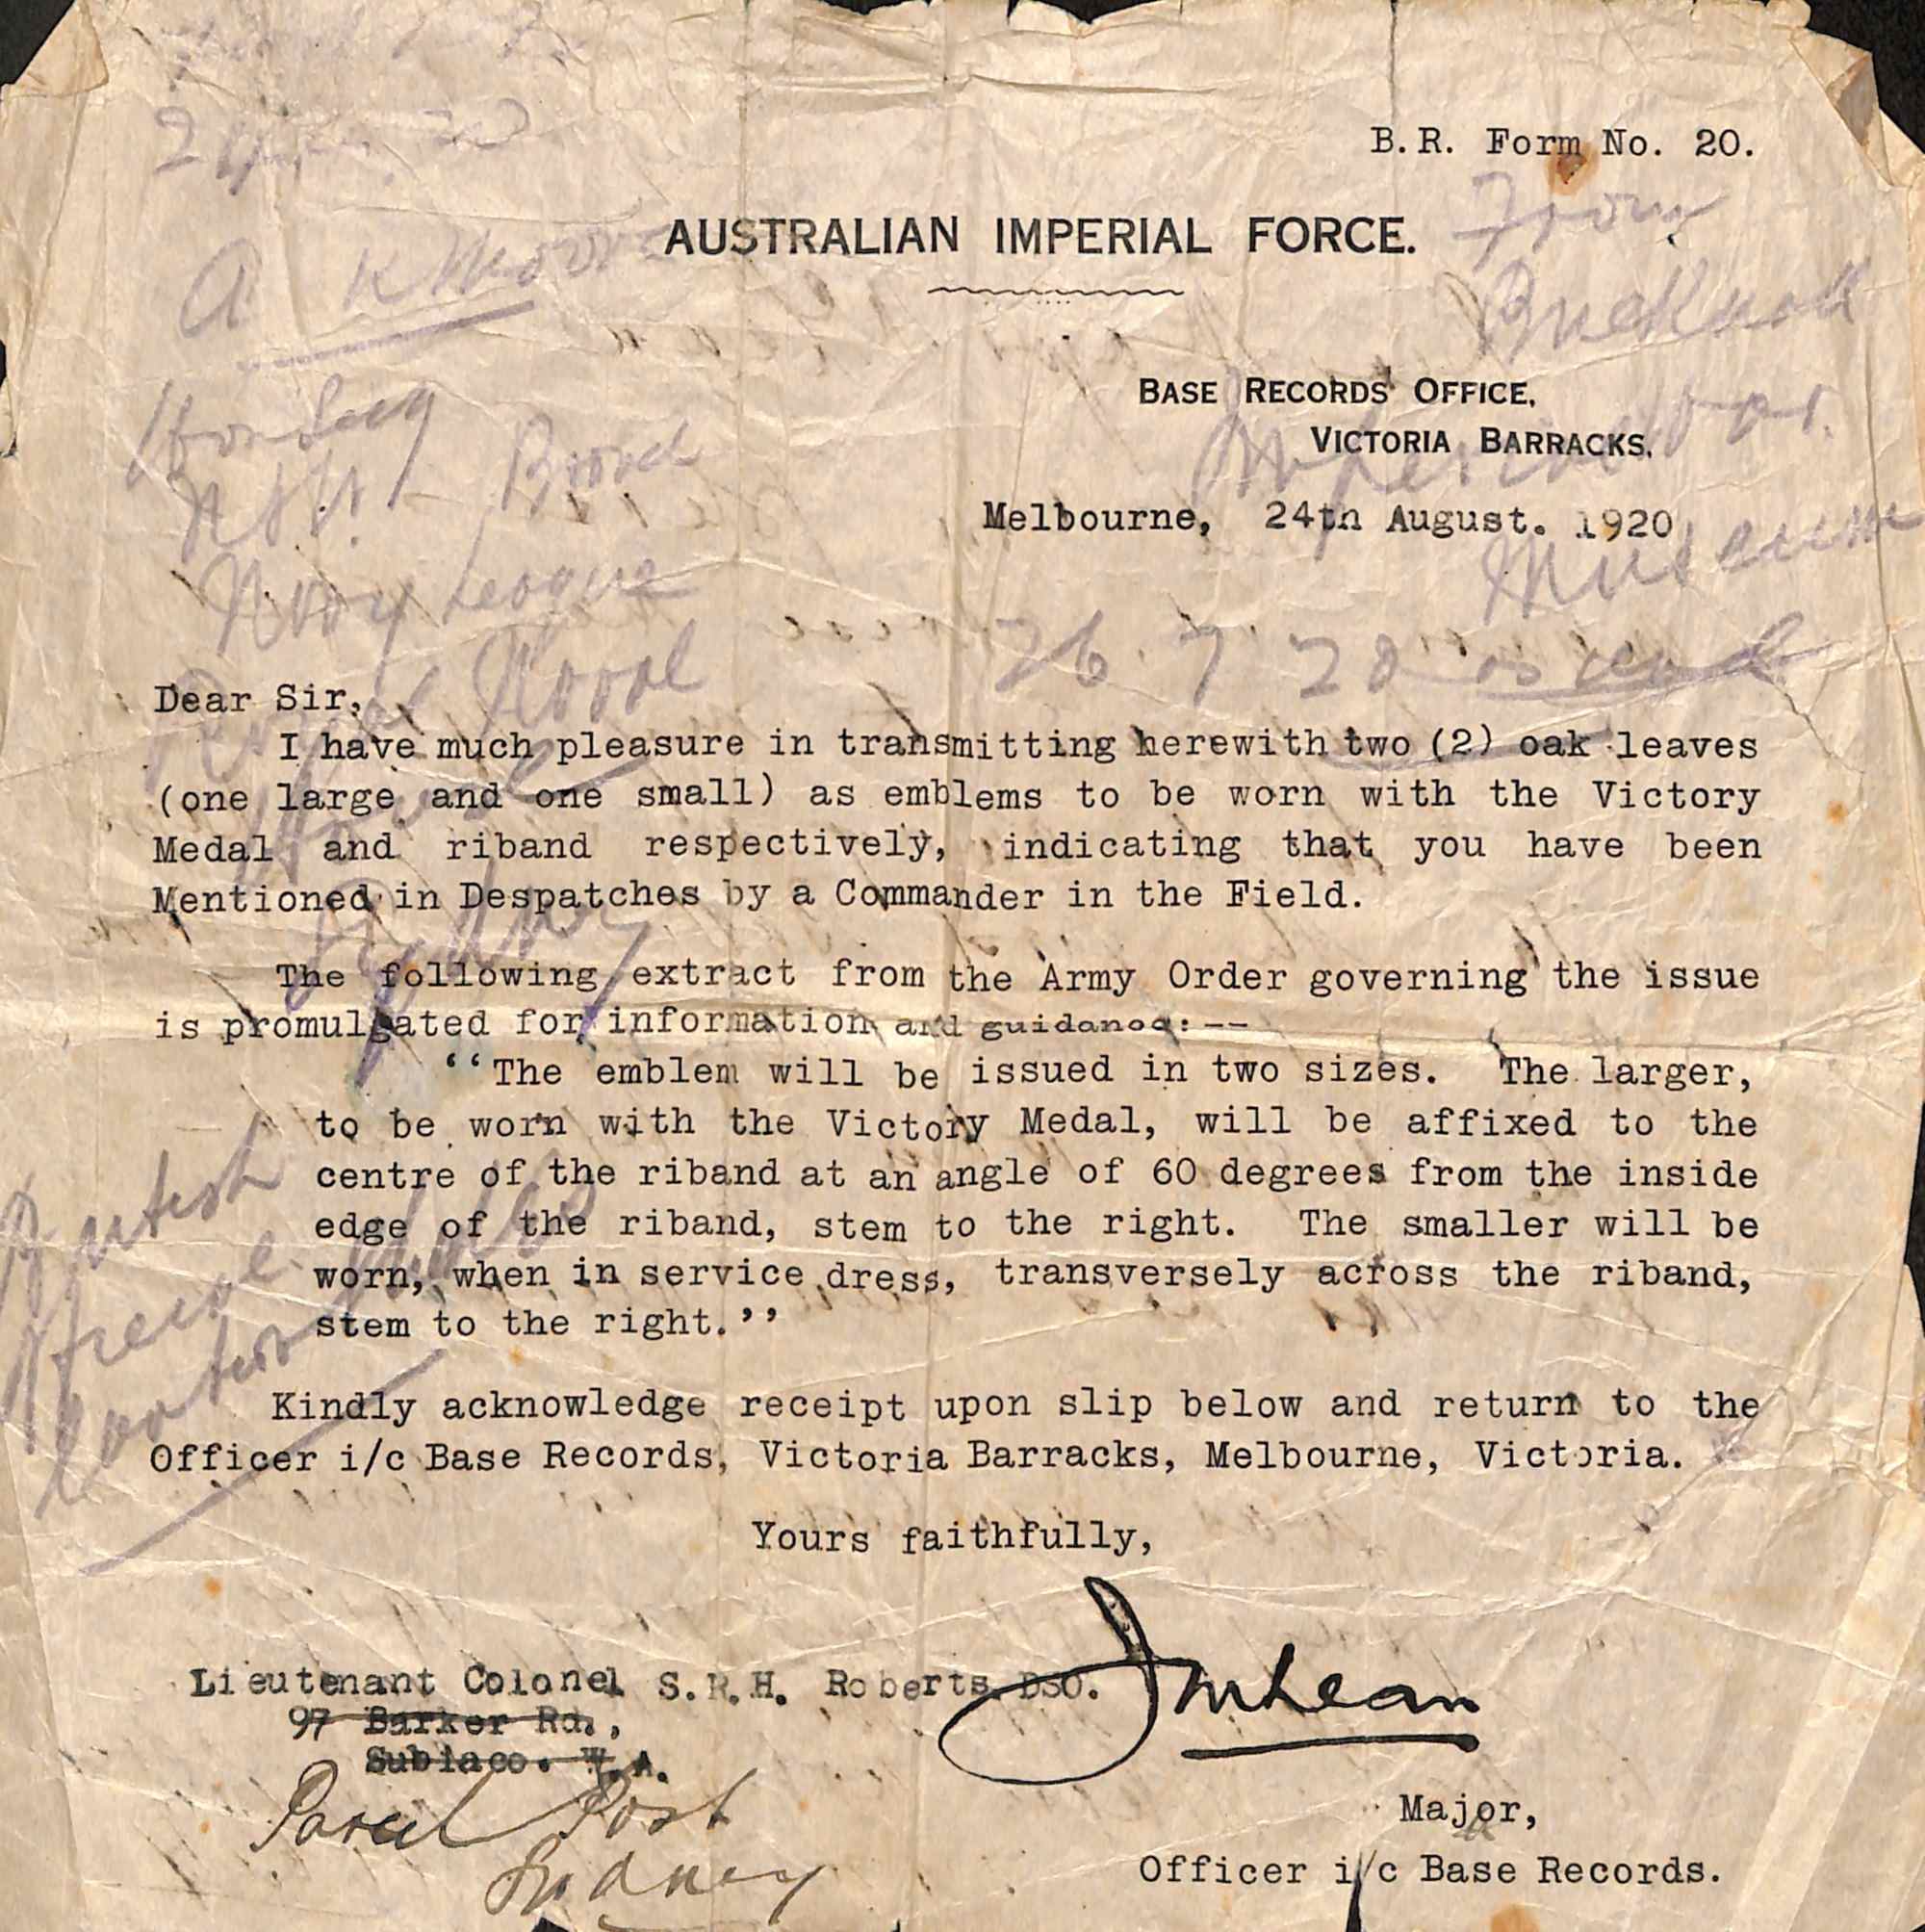 B.R. Form No. 20.
From
AUSTRALIAN IMPERIAL FORCE.
A K Moore
BASE RECORDS OFFICE,
VICTORIA BARRACKS,
Imperial War
Melbourne, 24th August. 1920
Museum
N S W. Broad
Navy League
26. 7 28
Dear Sir,
I have much pleasure in transmitting herewith two (2) oak leaves
(one large and one small) as emblems to be worn with the Victory
Medal and riband respectively, indicating that you have been
Mentioned in Despatches by a Commander in the Field.
Sydney
The following extract from the Army Order governing the issue
is promulgated for information and guidance:--
‘‘The emblem will be issued in two sizes. The larger,
to be worn with the Victory Medal, will be affixed to the
centre of the riband at an angle of 60 degrees from the inside
edge of the riband, stem to the right. The smaller will be
worn, when in service dress, transversely across the riband,
stem to the right.’’
British
Kindly acknowledge receipt upon slip below and return to the
Officer i/c Base Records, Victoria Barracks, Melbourne, Victoria.
Yours faithfully,
JMLean
Lieutenant Colonel S.R.H. Roberts. DSO.
97 Barker Rd.,
Subiaco. W.A.
Parcel Post
Sydney
Major,
Officer i/c Base Records.